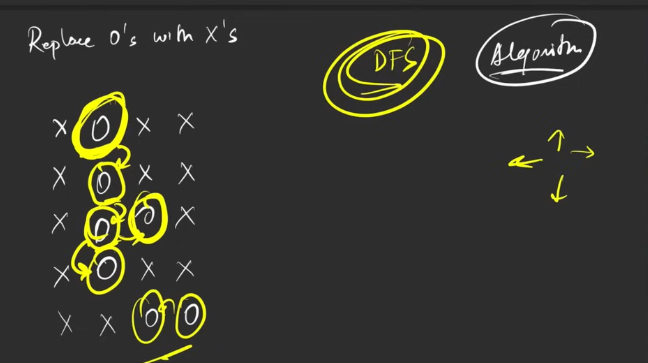 Replace O's with X's
DFS
Algorithm
X O X X
X O X X
X O O X
X O X X
X X O O